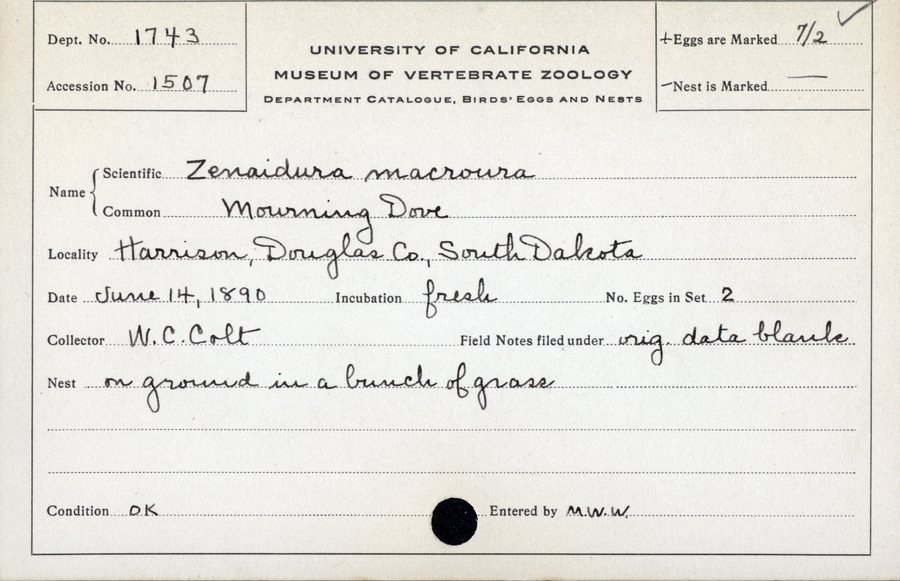 Dept. No. 1743
Accession No. 1507
UNIVERSITY OF CALIFORNIA
MUSEUM OF VERTEBRATE ZOOLOGY
DEPARTMENT CATALOGUE, BIRDS' EGGS AND NESTS
+Eggs are Marked 7/2 ✓
—Nest is Marked —
Name { Scientific Zenaidura macroura
Common Mourning Dove
Locality Harrison, Douglas Co., South Dakota
Date June 14, 1890 Incubation fresh No. Eggs in Set 2
Collector W. C. Colt Field Notes filed under orig. data blank
Nest on ground in a bunch of grass
Condition OK Entered by M.W.W.